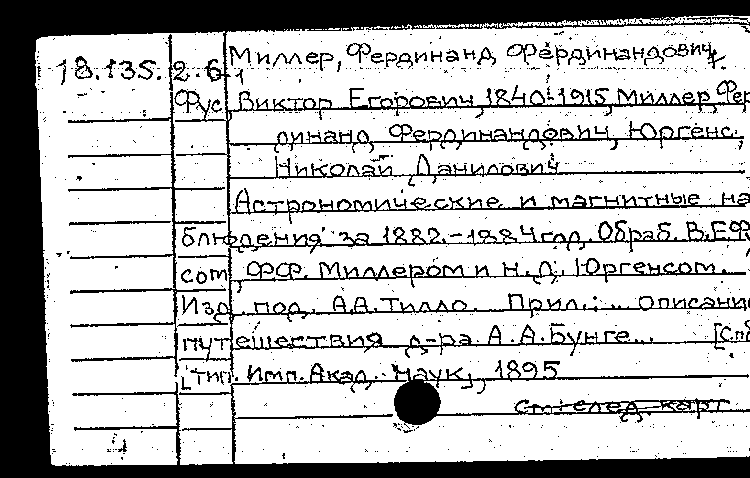 18.135.2.6 Миллер, Фердинанд Фердинандович
Фус, Виктор Егорович, 1840-1915, Миллер, Фер
динанд Фердинандович, Юргенс,
Николай Данилович
Астрономические и магнитные на
блюдения за 1882.-1884 год. Обраб. В.Е.Ф
сом, Ф.Ф. Миллером и Н.Д. Юргенсом.
Изд. под. А.А.Тилло. Прил.: .. описани
путешествия д-ра А.А.Бунге... [Спб
тип. Имп. Акад. наук], 1895
см. + след. карт
4